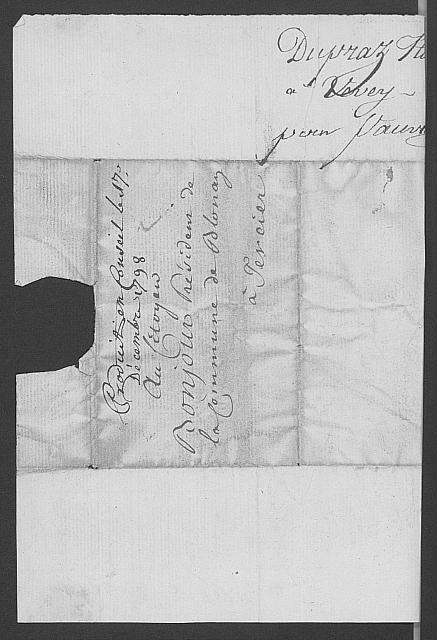 Dupraz
à Vevey
pour
Produit en Conseil le 17e
Décembre 1798
Au Citoyen
Bonjour Président de
la Commune de Blonay
à Tercier